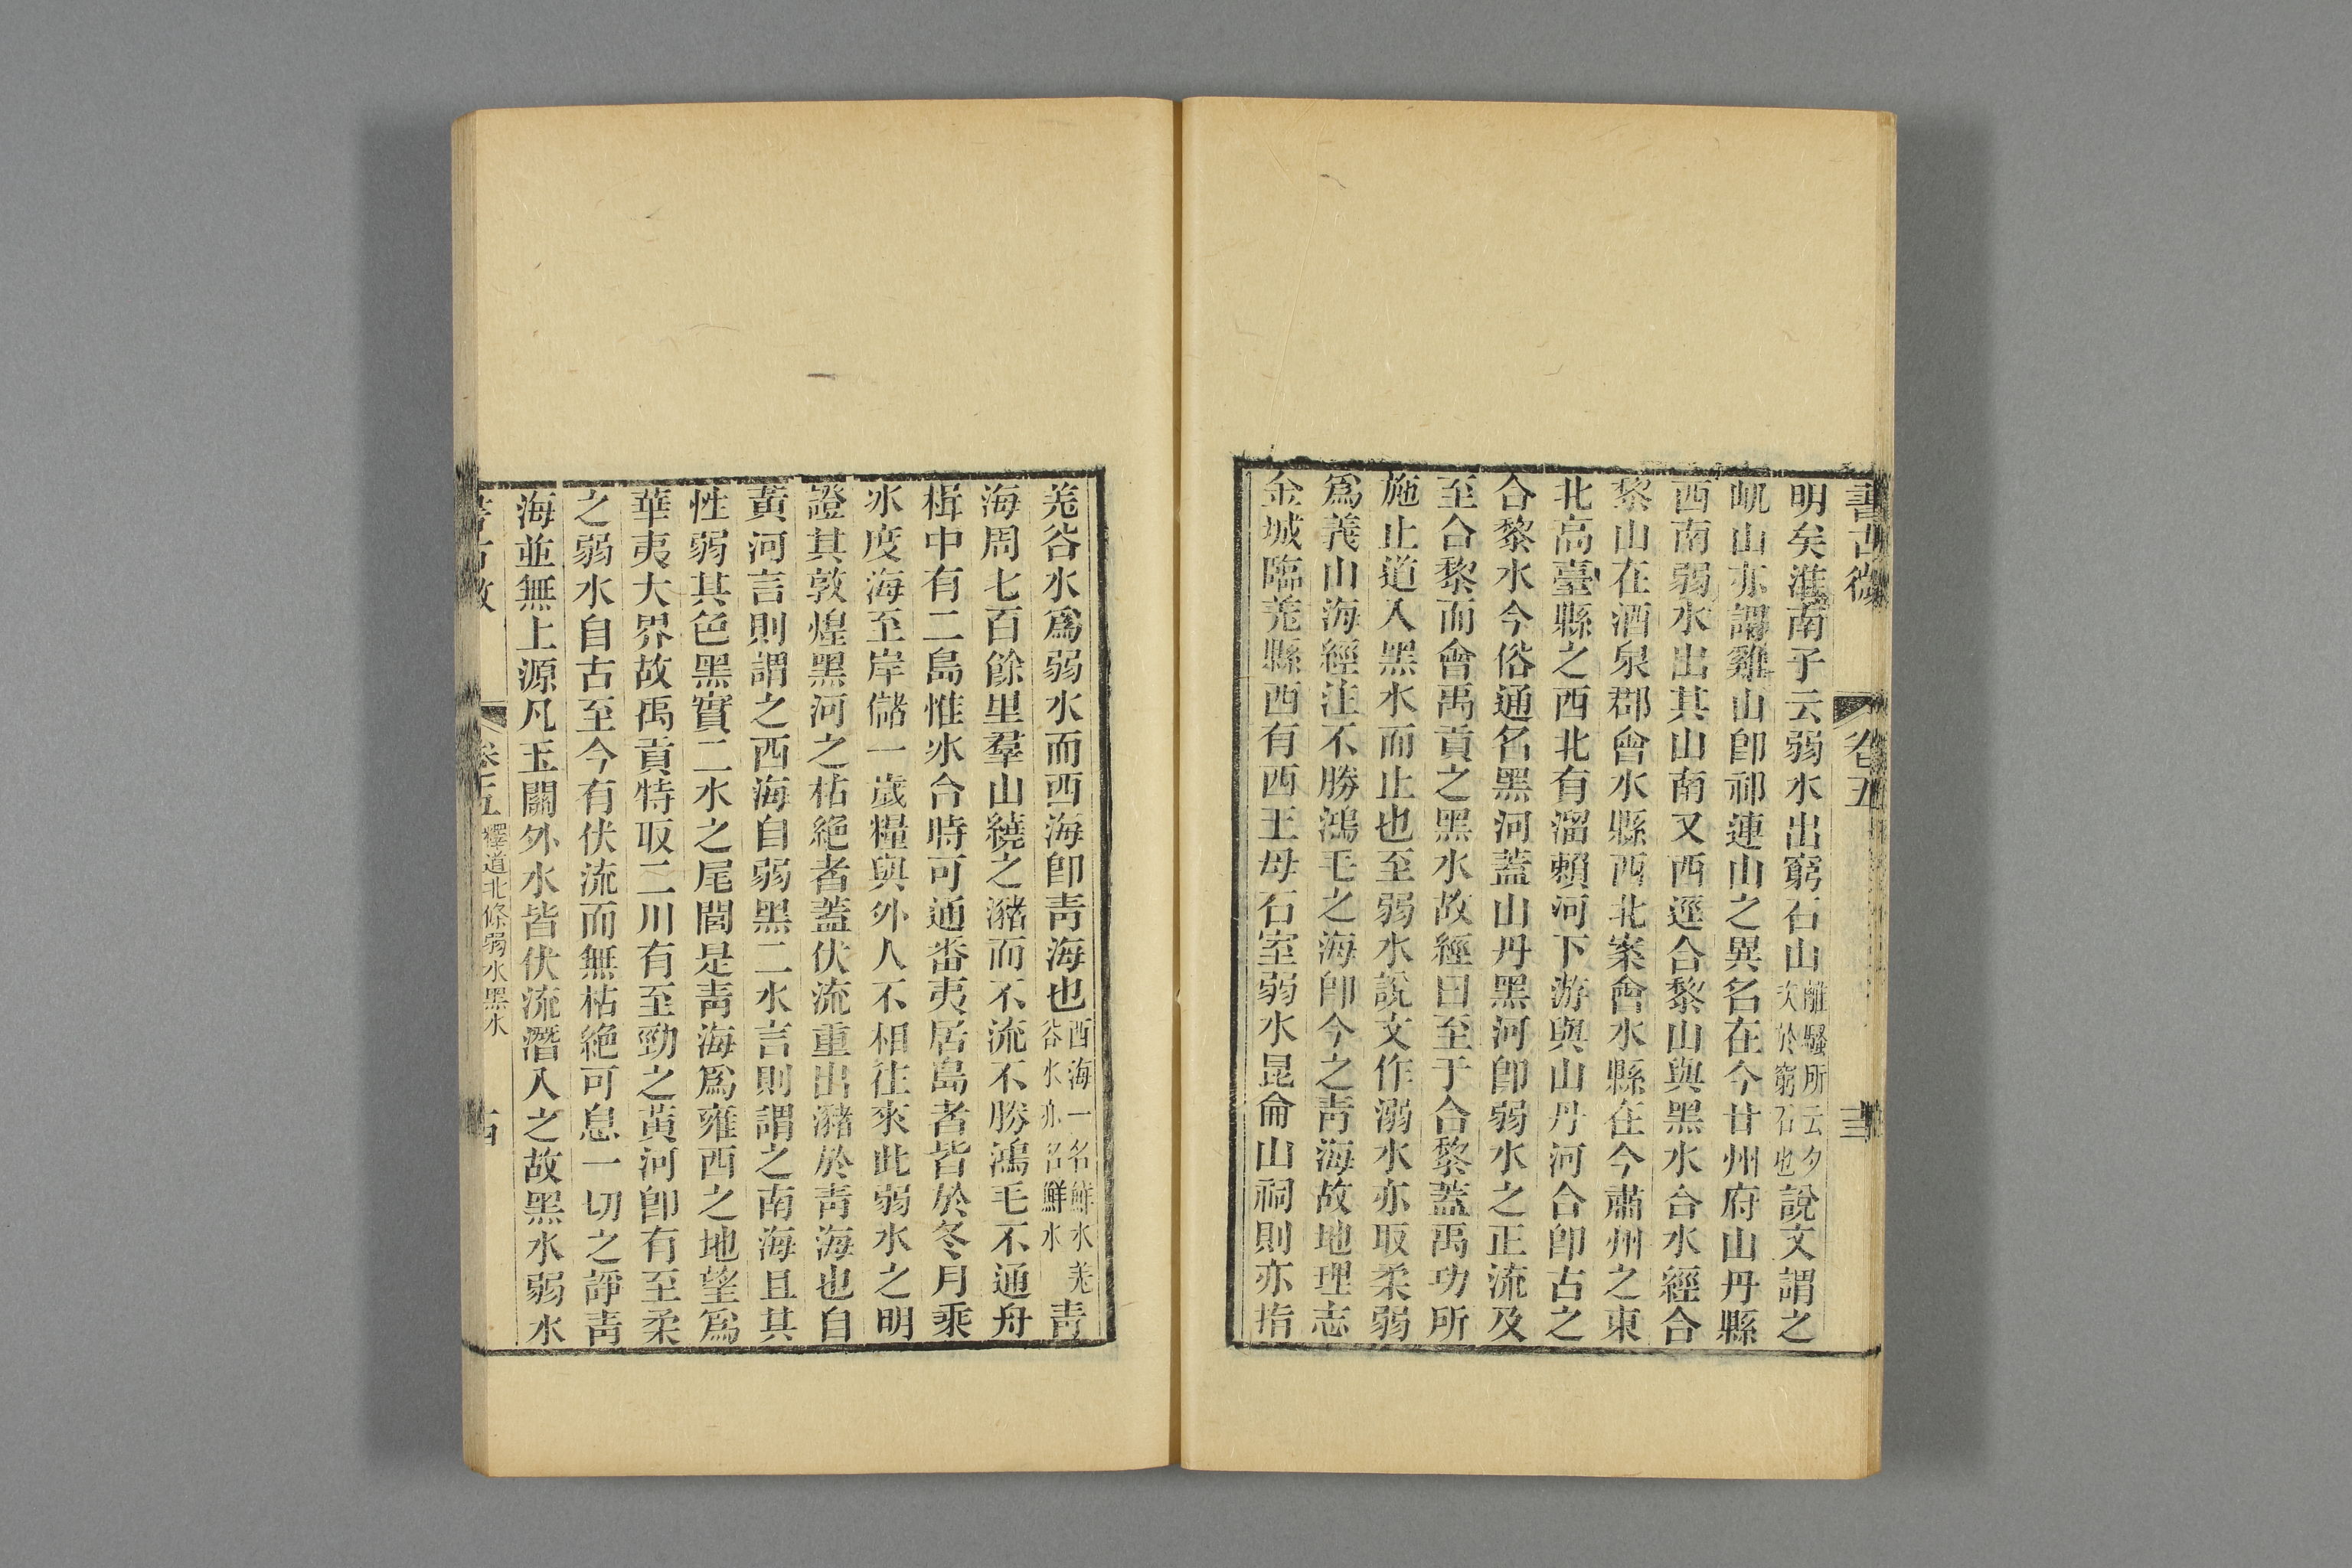 書古微 卷五
明矣淮南子云弱水出窮石山離騷所云夕次於窮石也說文謂之
屼山亦謂雞山卽祁連山之異名在今甘州府山丹縣
西南弱水出其山南又西逕合黎山與黑水合水經合
黎山在酒泉郡會水縣西北案會水縣在今肅州之東
北高臺縣之西北有溜賴河下游與山丹河合卽古之
合黎水今俗通名黑河蓋山丹黑河卽弱水之正流及
至合黎而會禹貢之黑水故經曰至于合黎蓋禹功所
施止道入黑水而止也至弱水說文作溺水亦取柔弱
爲義山海經注不勝鴻毛之海卽今之靑海故地理志
金城臨羌縣西有西王母石室弱水昆侖山祠則亦指
羌谷水爲弱水而西海卽靑海也西海一名鮮水羌谷水亦名鮮水靑
海周七百餘里羣山繞之瀦而不流不勝鴻毛不通舟
楫中有二島惟冰合時可通番夷居島者皆於冬月乘
冰度海至岸儲一歲糧與外人不相往來此弱水之明
證其敦煌黑河之枯絶者蓋伏流重出瀦於靑海也自
黃河言則謂之西海自弱黑二水言則謂之南海且其
性弱其色黑實二水之尾閭是靑海爲雍西之地望爲
華夷大界故禹貢特取二川有至勁之黃河卽有至柔
之弱水自古至今有伏流而無枯絶可息一切之諍靑
海並無上源凡玉關外水皆伏流潛入之故黑水弱水
卷五 釋道北條弱水黑水